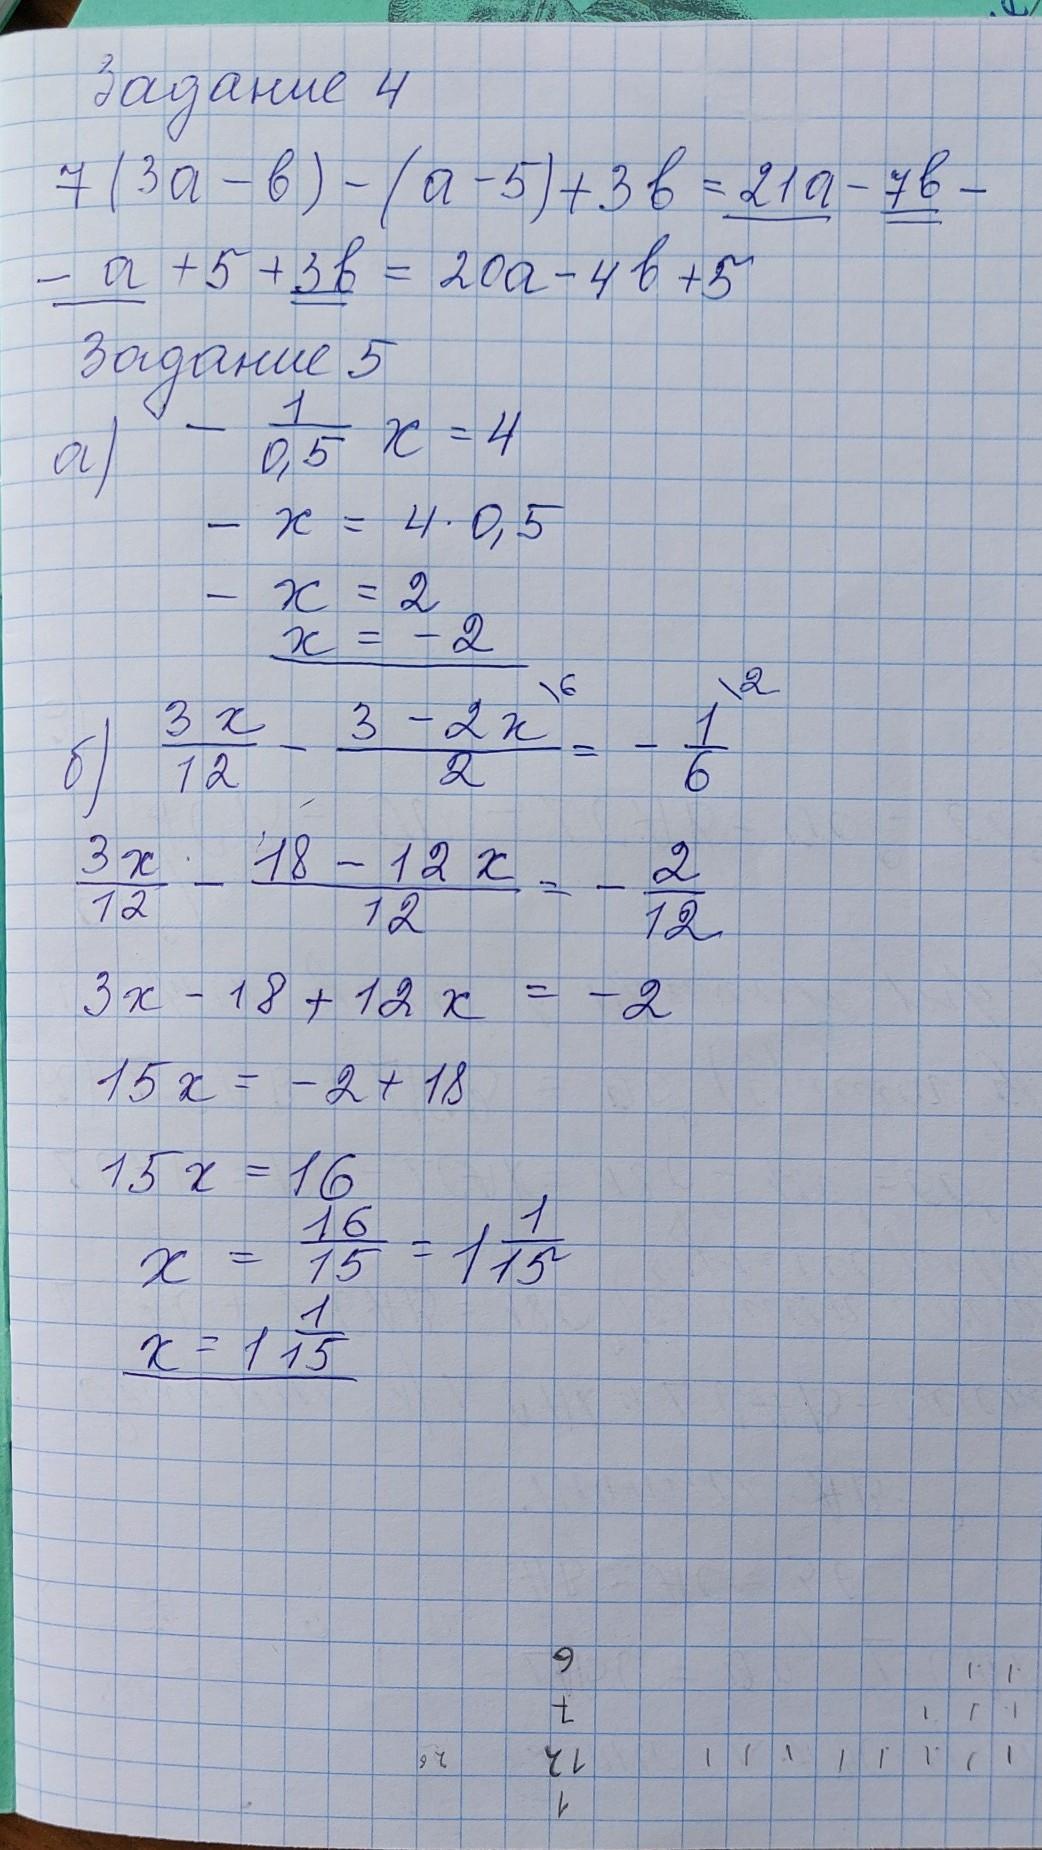 Задание 4
7(3a-b)-(a-5)+3b=21a-7b-
-a+5+3b=20a-4b+5
Задание 5
а) -1/0,5 x=4
-x=4·0,5
-x=2
x=-2
б) 3x/12 - 3-2x\6/2 = -1\2/6
3x/12 - 18-12x/12 = -2/12
3x-18+12x=-2
15x=-2+18
15x=16
x=16/15=1 1/15
x=1 1/15
6
7
12
1